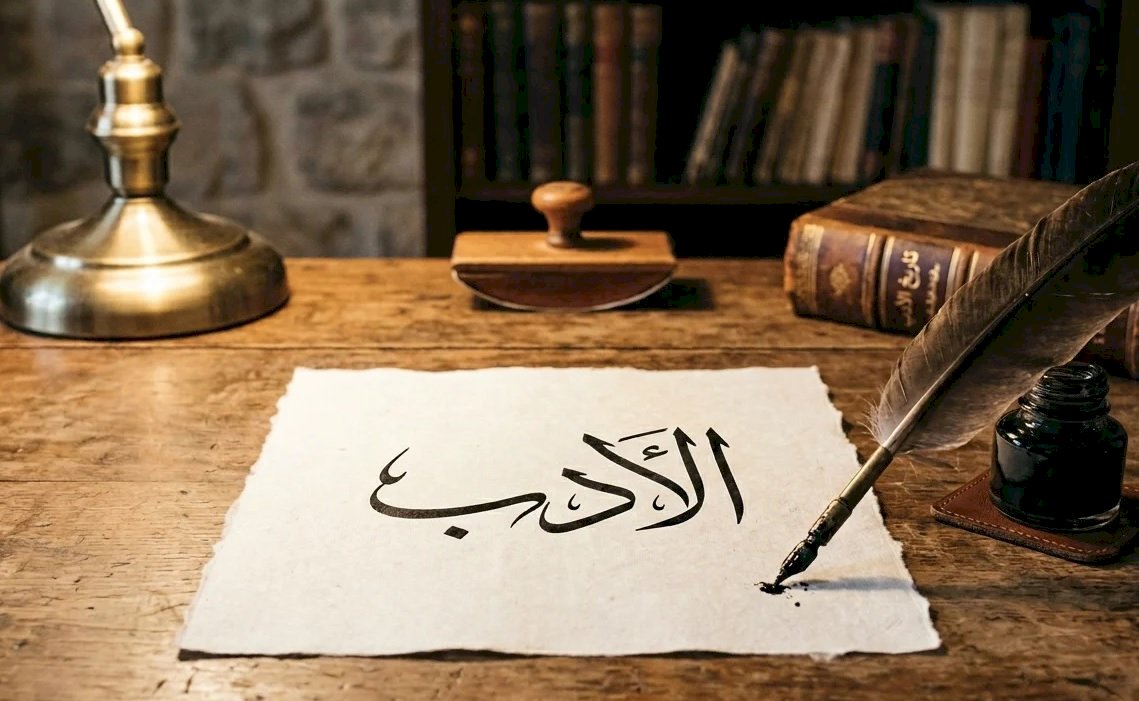 الأدب
تاريخ الأدب